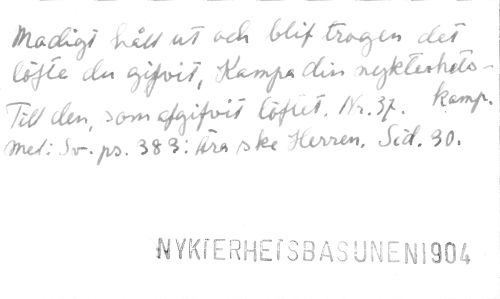 Modigt håll ut och blif trogen det
löfte du gifvit, Kämpa din nykterhets-
kamp.
Till den, som afgifvit löftet. Nr. 37.
Mel: Sv. ps. 383: Ära ske Herren. Sid. 30.
NYKTERHETSBASUNEN 1904